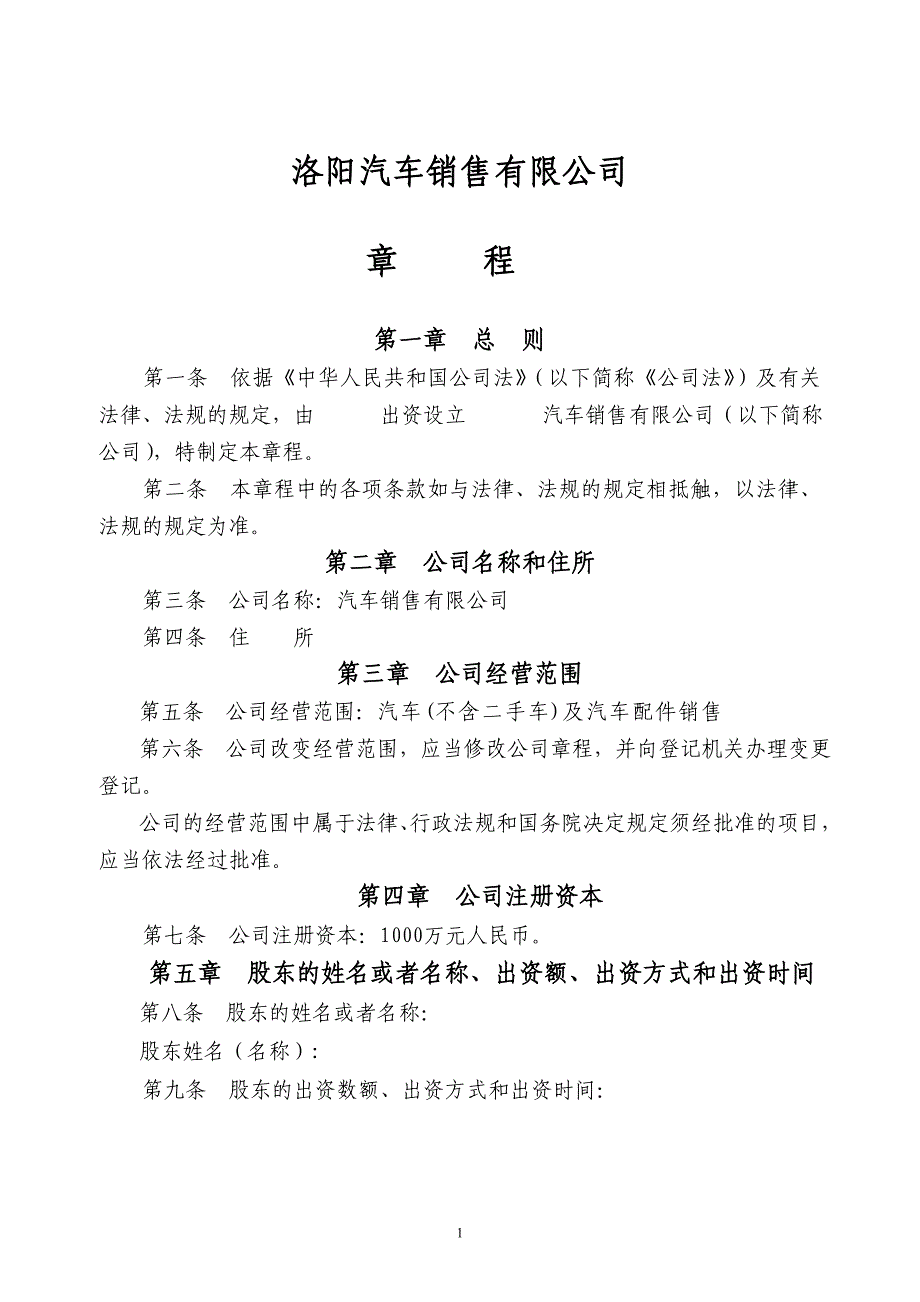 洛阳汽车销售有限公司
章　　程
第一章　总　则
第一条　依据《中华人民共和国公司法》（以下简称《公司法》）及有关
法律、法规的规定，由　　　出资设立　　　汽车销售有限公司（以下简称
公司），特制定本章程。
第二条　本章程中的各项条款如与法律、法规的规定相抵触，以法律、
法规的规定为准。
第二章　公司名称和住所
第三条　公司名称：汽车销售有限公司
第四条　住　　所
第三章　公司经营范围
第五条　公司经营范围：汽车(不含二手车)及汽车配件销售
第六条　公司改变经营范围，应当修改公司章程，并向登记机关办理变更
登记。
公司的经营范围中属于法律、行政法规和国务院决定规定须经批准的项目，
应当依法经过批准。
第四章　公司注册资本
第七条　公司注册资本：1000万元人民币。
第五章　股东的姓名或者名称、出资额、出资方式和出资时间
第八条　股东的姓名或者名称：
股东姓名（名称）：
第九条　股东的出资数额、出资方式和出资时间：
1